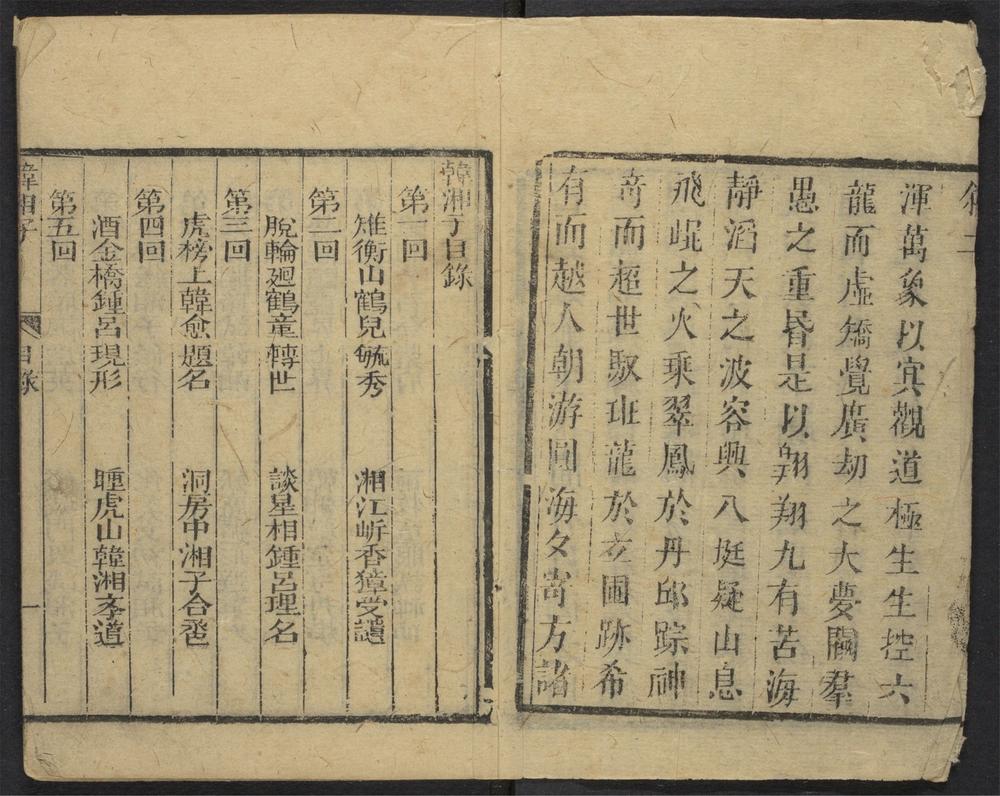 敘二
渾萬象以冥觀道極生生控六
龍而虛矯覺廣劫之大夢闢羣
愚之重昏是以翱翔九有苦海
靜滔天之波容與八挺疑山息
飛崐之火乘翠鳳於丹邱踪神
奇而超世馭班龍於玄圃跡希
有而越人朝游圓海夕寄方諸
韓湘子目錄
第一回
雉衡山鶴兒毓秀 湘江岍香獐受譴
第二回
脫輪廻鶴童轉世 談星相鍾呂理名
第三回
虎榜上韓愈題名 洞房中湘子合巹
第四回
洒金橋鍾呂現形 睡虎山韓湘學道
第五回
韓湘子 目錄 一